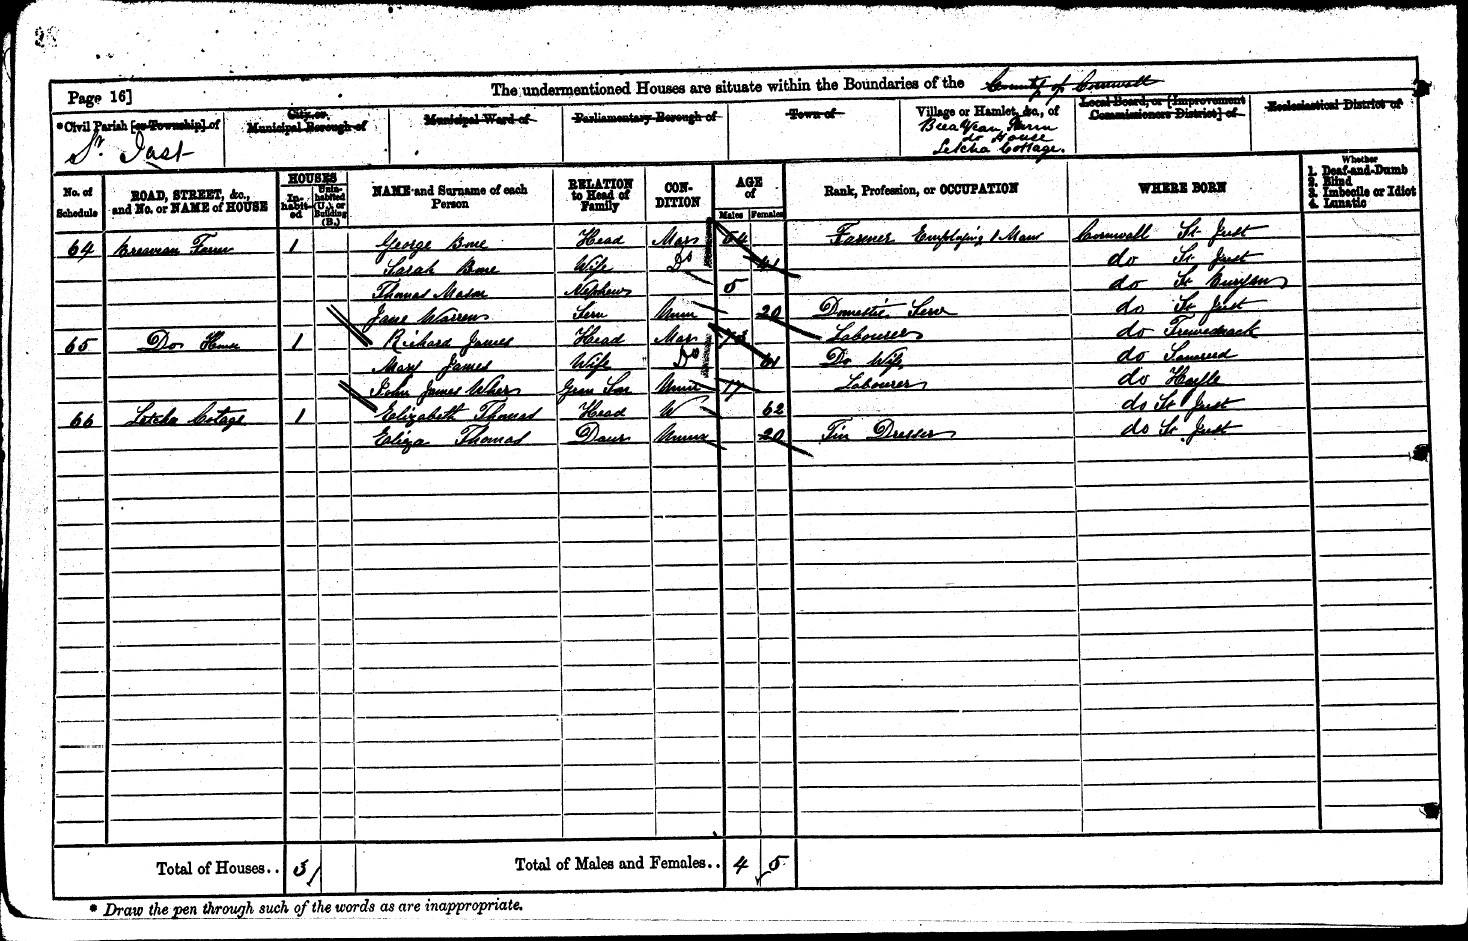 The undermentioned Houses are situate within the Boundaries of the County of Cornwall
Page 16]
*Civil Parish [or Township] of
St. Just
City or
Municipal Borough of
Municipal Ward of
Parliamentary Borough of
Town of
Village or Hamlet, &c., of
Farm
do House
Letcha Cottage.
Local Board, or [Improvement
Commissioners District] of
Ecclesiastical District of
No. of
Schedule
ROAD, STREET, &c.,
and No. or NAME of HOUSE
HOUSES
In-
habit-
ed
Unin-
habited
(U.), or
Building
(B.)
NAME and Surname of each
Person
RELATION
to Head of
Family
CON-
DITION
AGE
of
Males Females
Rank, Profession, or OCCUPATION
WHERE BORN
Whether
1. Deaf-and-Dumb
2. Blind
3. Imbecile or Idiot
4. Lunatic
64 Farm 1 George Bone Head Mar 54 Farmer Employing 1 Man Cornwall St Just
Sarah Bone Wife Do 41 do St Just
Thomas Mason Nephew 5 do St
Jane Warren Serv Unm 20 Domestic Serv do St Just
65 Do House 1 Richard James Head Mar Labourer do
Mary James Wife Do 61 Do Wife do
John James Gran Son Unm 17 Labourer do Hayle
66 Letcha Cotage 1 Elizabeth Thomas Head W 62 do St Just
Eliza Thomas Daur Unm 20 Tin Dresser do St Just
Total of Houses.. 3
Total of Males and Females.. 4 5
* Draw the pen through such of the words as are inappropriate.